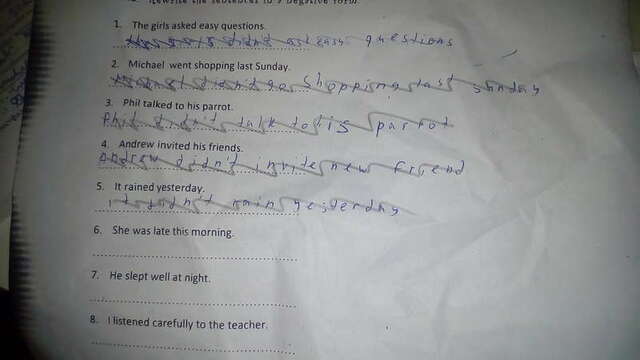 Rewrite the sentences to negative form.
1. The girls asked easy questions.
didnt ask easy questions
2. Michael went shopping last Sunday.
didn't go shopping last sunday
3. Phil talked to his parrot.
Phil didn't talk to his parrot
4. Andrew invited his friends.
Andrew didn't invite new friend
5. It rained yesterday.
it didnt rain yesterday
6. She was late this morning.
7. He slept well at night.
8. I listened carefully to the teacher.